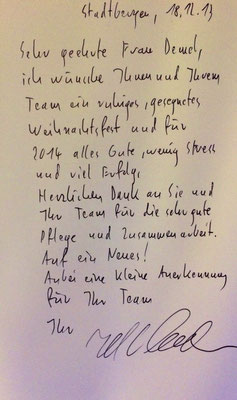 Stadtbergen, 18.12.13
Sehr geehrte Frau
ich wünsche Ihnen und Ihrem
Team ein ruhiges, gesegnetes
Weihnachtsfest und für
2014 alles Gute, wenig Stress
und viel Erfolg.
Herzlichen Dank an Sie und
Ihr Team für die sehr gute
Pflege und Zusammenarbeit.
Auf ein Neues!
Anbei eine kleine Anerkennung
für Ihr Team
Ihr